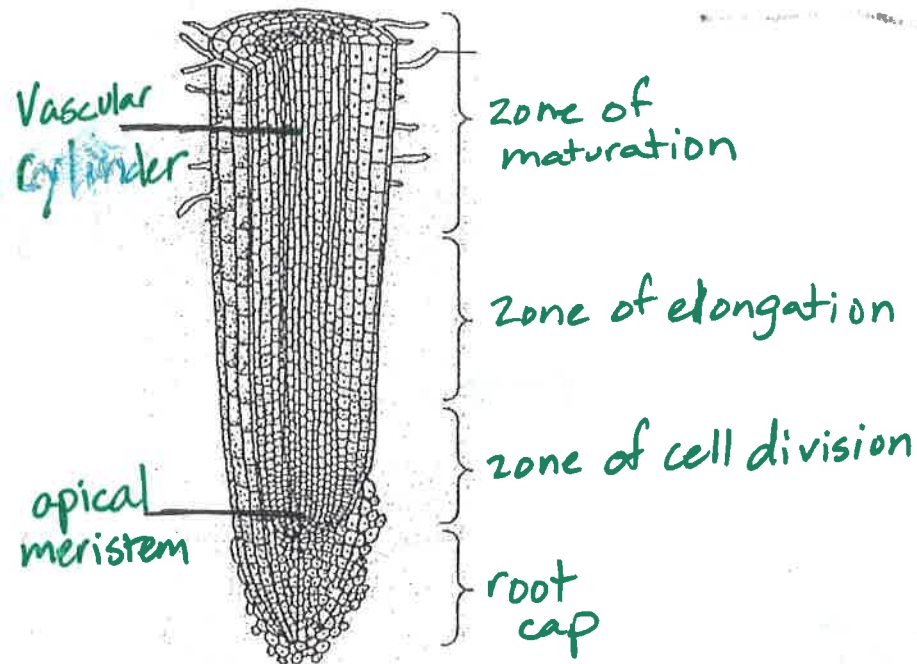 Vascular
cylinder
zone of
maturation
zone of elongation
zone of cell division
apical
meristem
root
cap